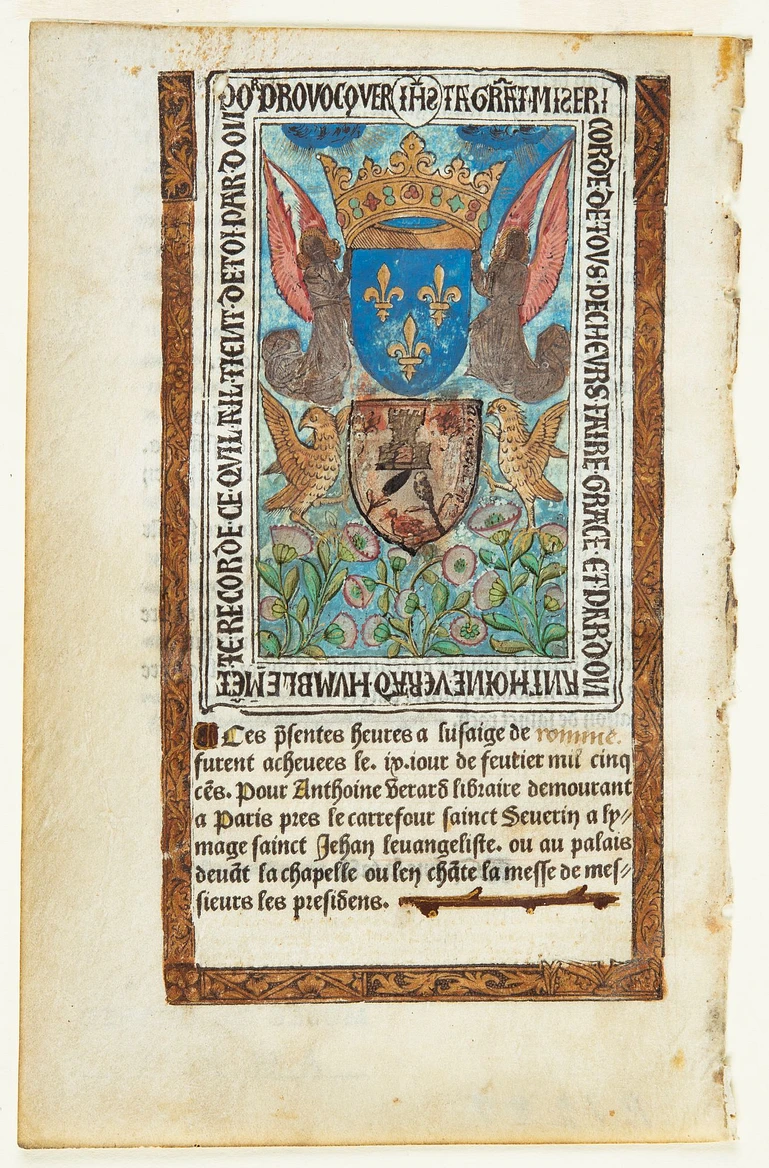 POᴿ PROVOCQVER IHS TA GRÃT MISERI
CORDE·DE·TOVS·PECHEVRS·FAIRE·GRACE·ET·PARDON
ANTHOINE VERARD HVMBLEMĒT
TE·RECORDE·CE·QVIL·A·IL·TIENT·DE·TOI·PAR·DON
Ces p̃sentes heures a lusaige de romme.
furent acheuees le. ix.iour de feurier mil cinq
cẽs. Pour Anthoine Verard libraire demourant
a Paris pres le carrefour sainct Seuerin a ly⸗
mage sainct Jehan leuangeliste. ou au palais
deuãt la chapelle ou len chãte la messe de mes⸗
sieurs les presidens.